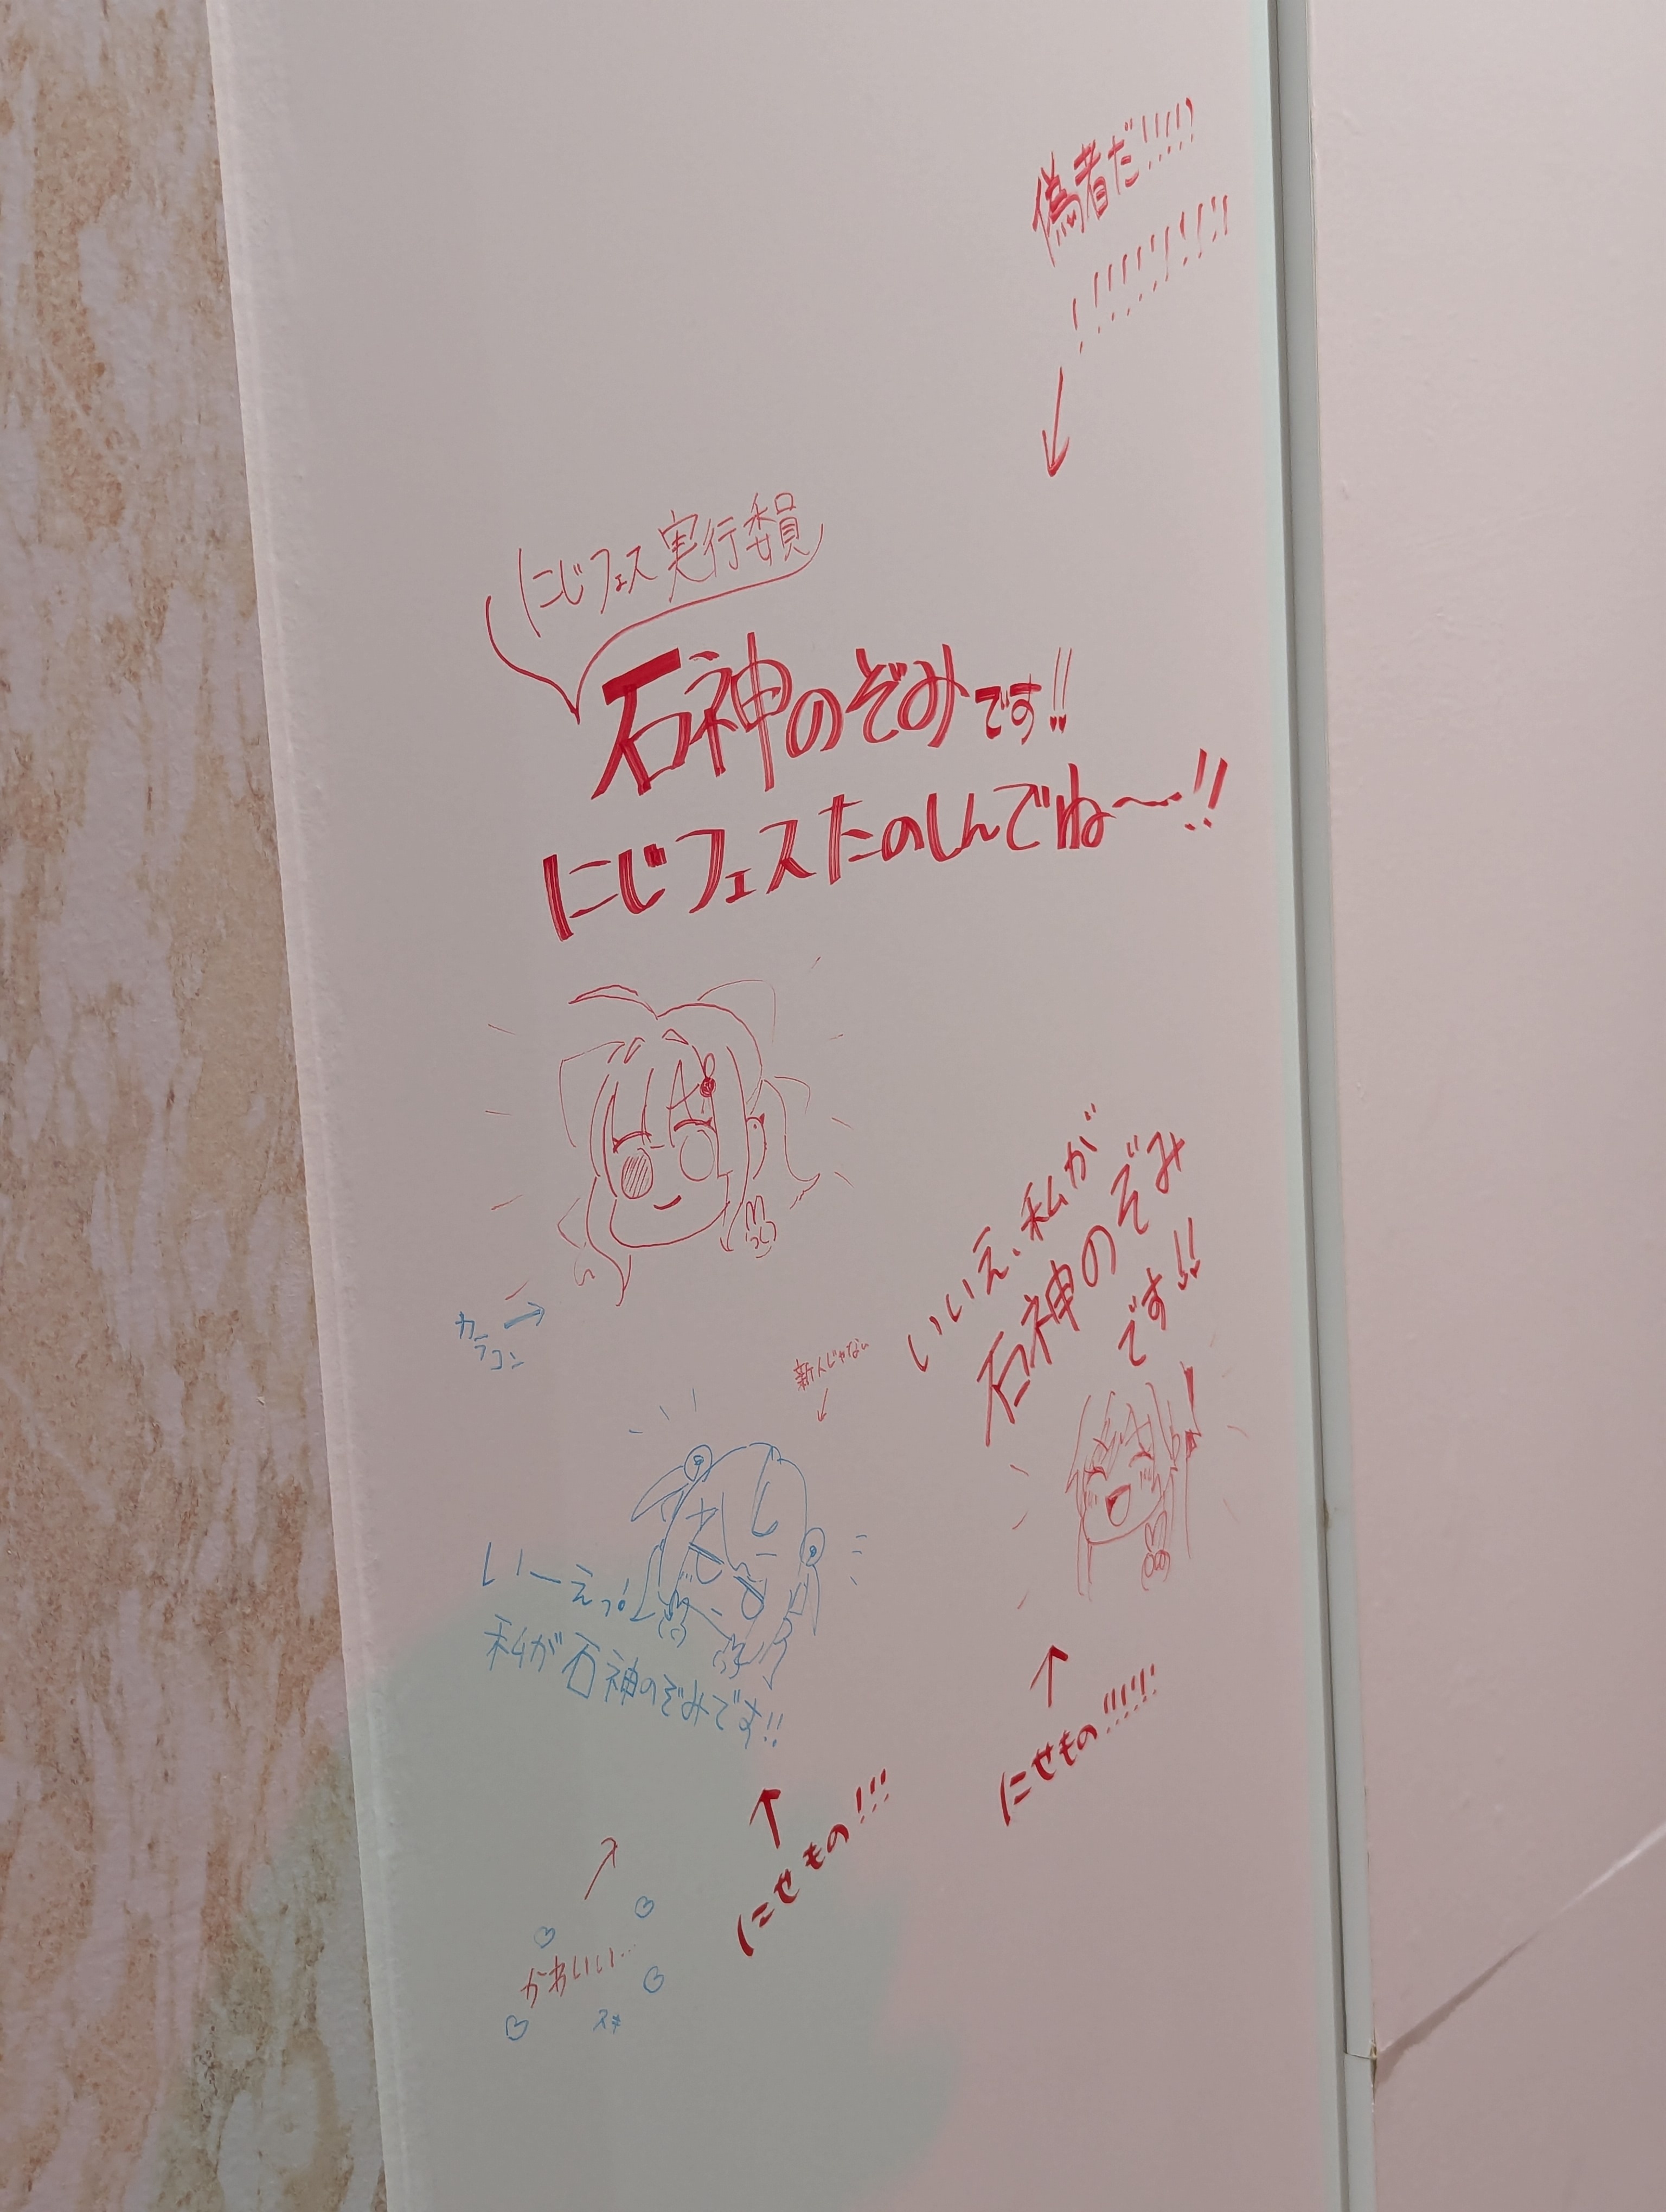 偽者だ!!!!!
!!!!!!!!!
にじフェス実行委員
石神のぞみです!!
にじフェスたのしんでね〜!!
カラコン
いいえ、私が
石神のぞみ
です!!
新人じゃない
いーえっ!
私が石神のぞみです!!
にせもの!!!!!
にせもの!!!
かわいい…
スキ